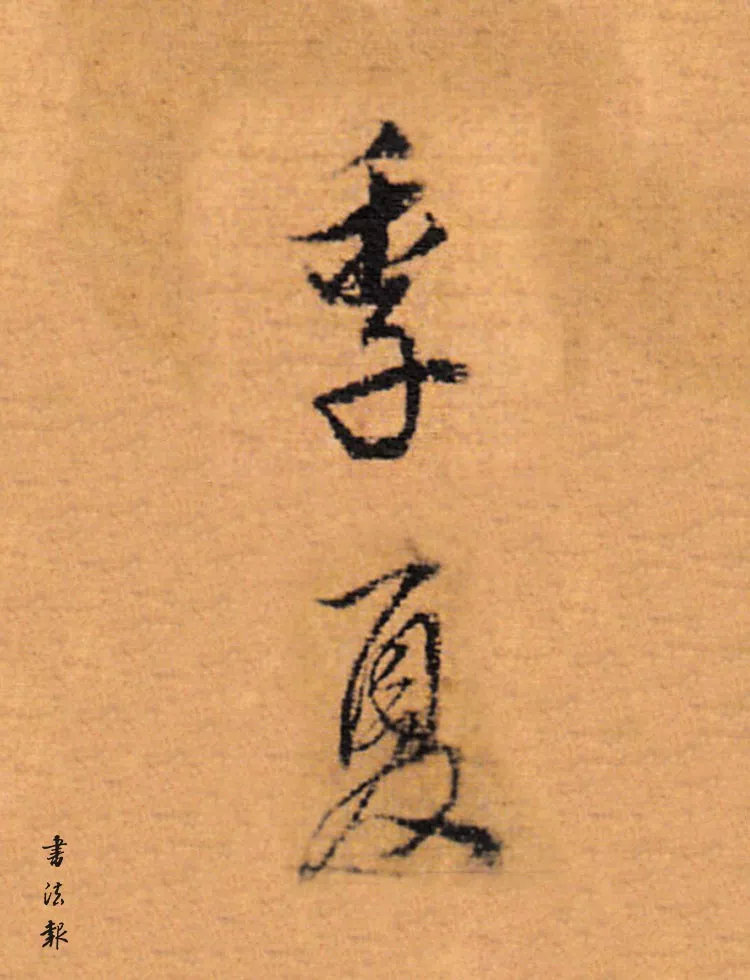 季夏
書法報